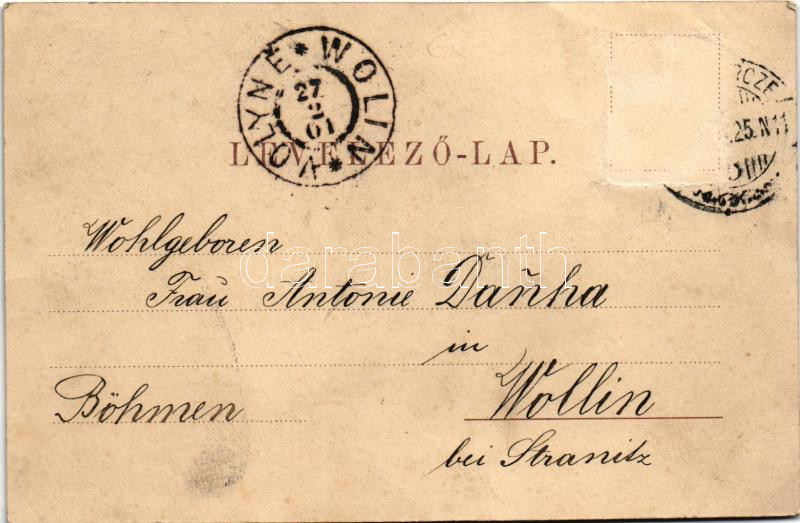 WOLIN * VOLYNĚ *
27
01
CZE
25. N 11
LEVELEZŐ-LAP.
Wohlgeboren
Frau Antonie Daňha
in
Wollin
Böhmen
bei Stranitz
darabanth